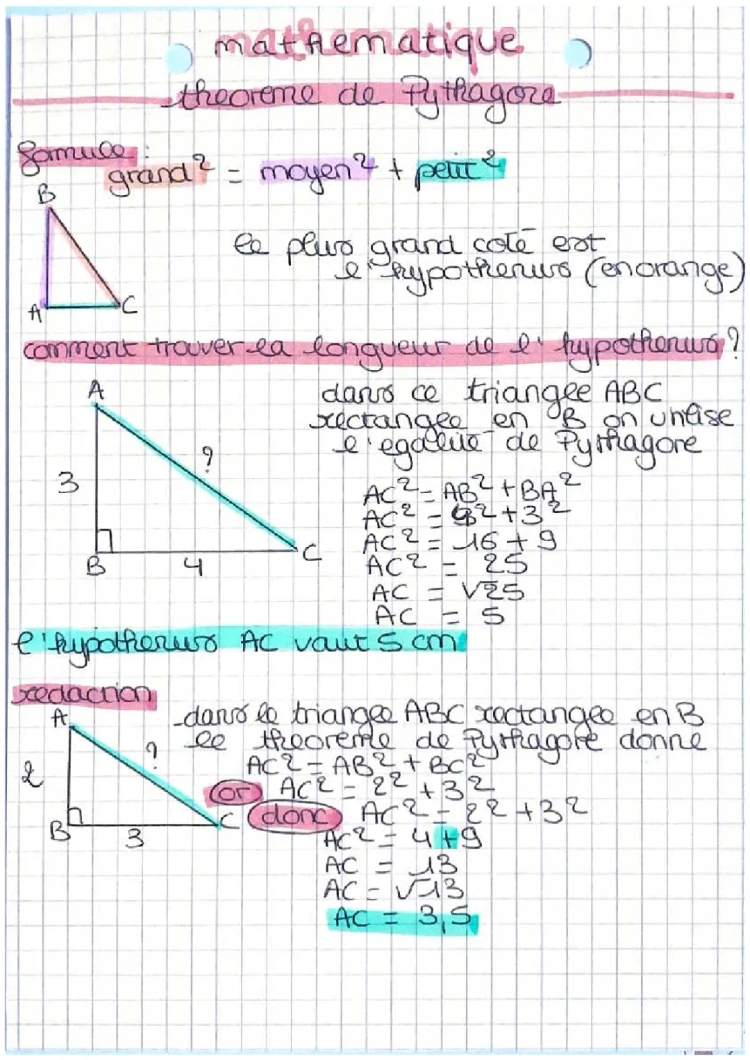 mathematique
theoreme de Pythagore
formule :
grand² = moyen² + petit²
B
le plus grand coté est
l'hypothenus (en orange)
A C
comment trouver la longueur de l'hypothenus ?
A
dans ce triangle ABC
rectangle en B on utilise
l'egalité de Pythagore
?
3
AC² = AB² + BA²
AC² = 4² + 3²
AC² = 16 + 9
B 4 C
AC² = 25
AC = √25
AC = 5
l'hypothenus AC vaut 5 cm
redaction
A
dans le triangle ABC rectangle en B
le theoreme de Pythagore donne
?
AC² = AB² + BC²
2
or AC² = 2² + 3²
B 3 C
donc AC² = 2² + 3²
AC² = 4 + 9
AC = 13
AC = √13
AC = 3,5